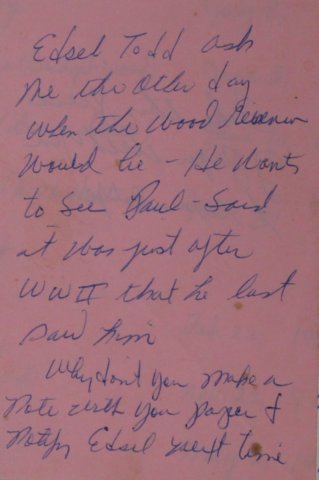 Edsel Todd ask
me the other day
when the Wood Reunion
would be - He wants
to see Paul - Said
it was just after
WWII that he last
saw him
Why don't you make a
note with you papers &
notify Edsel next time